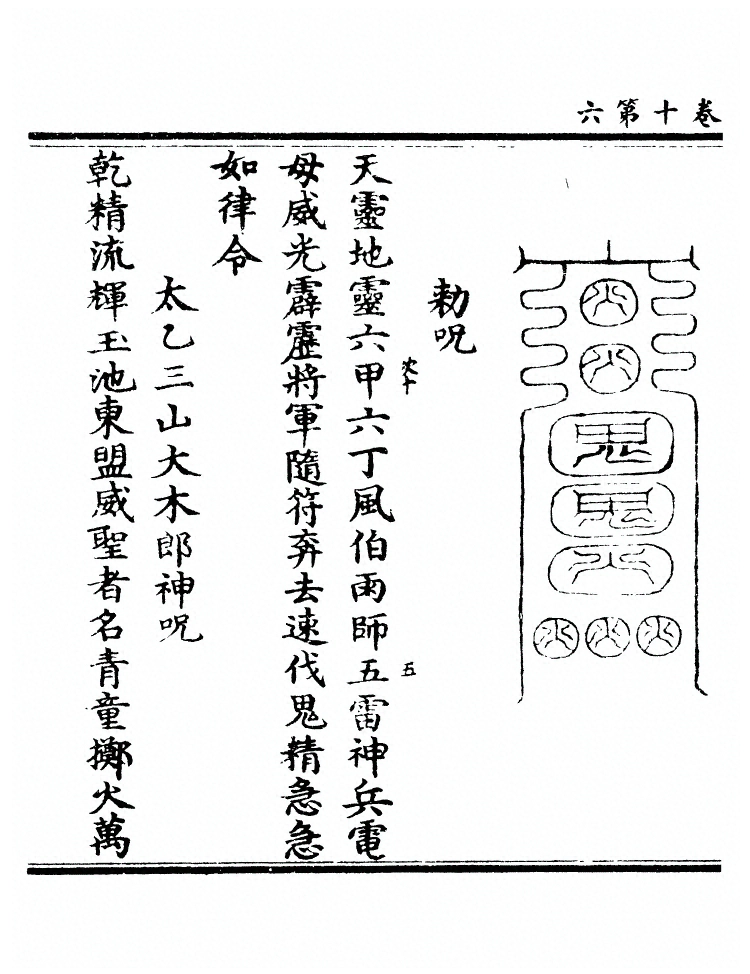 卷十第六
火
火
鬼
鬼
火
火火火
勅呪
天靈地靈六甲六丁風伯雨師五雷神兵電
母威光霹靂將軍隨符奔去速伐鬼精急急
如律令
太乙三山大木郎神呪
乾精流輝玉池東盟威聖者名青童擲火萬
五